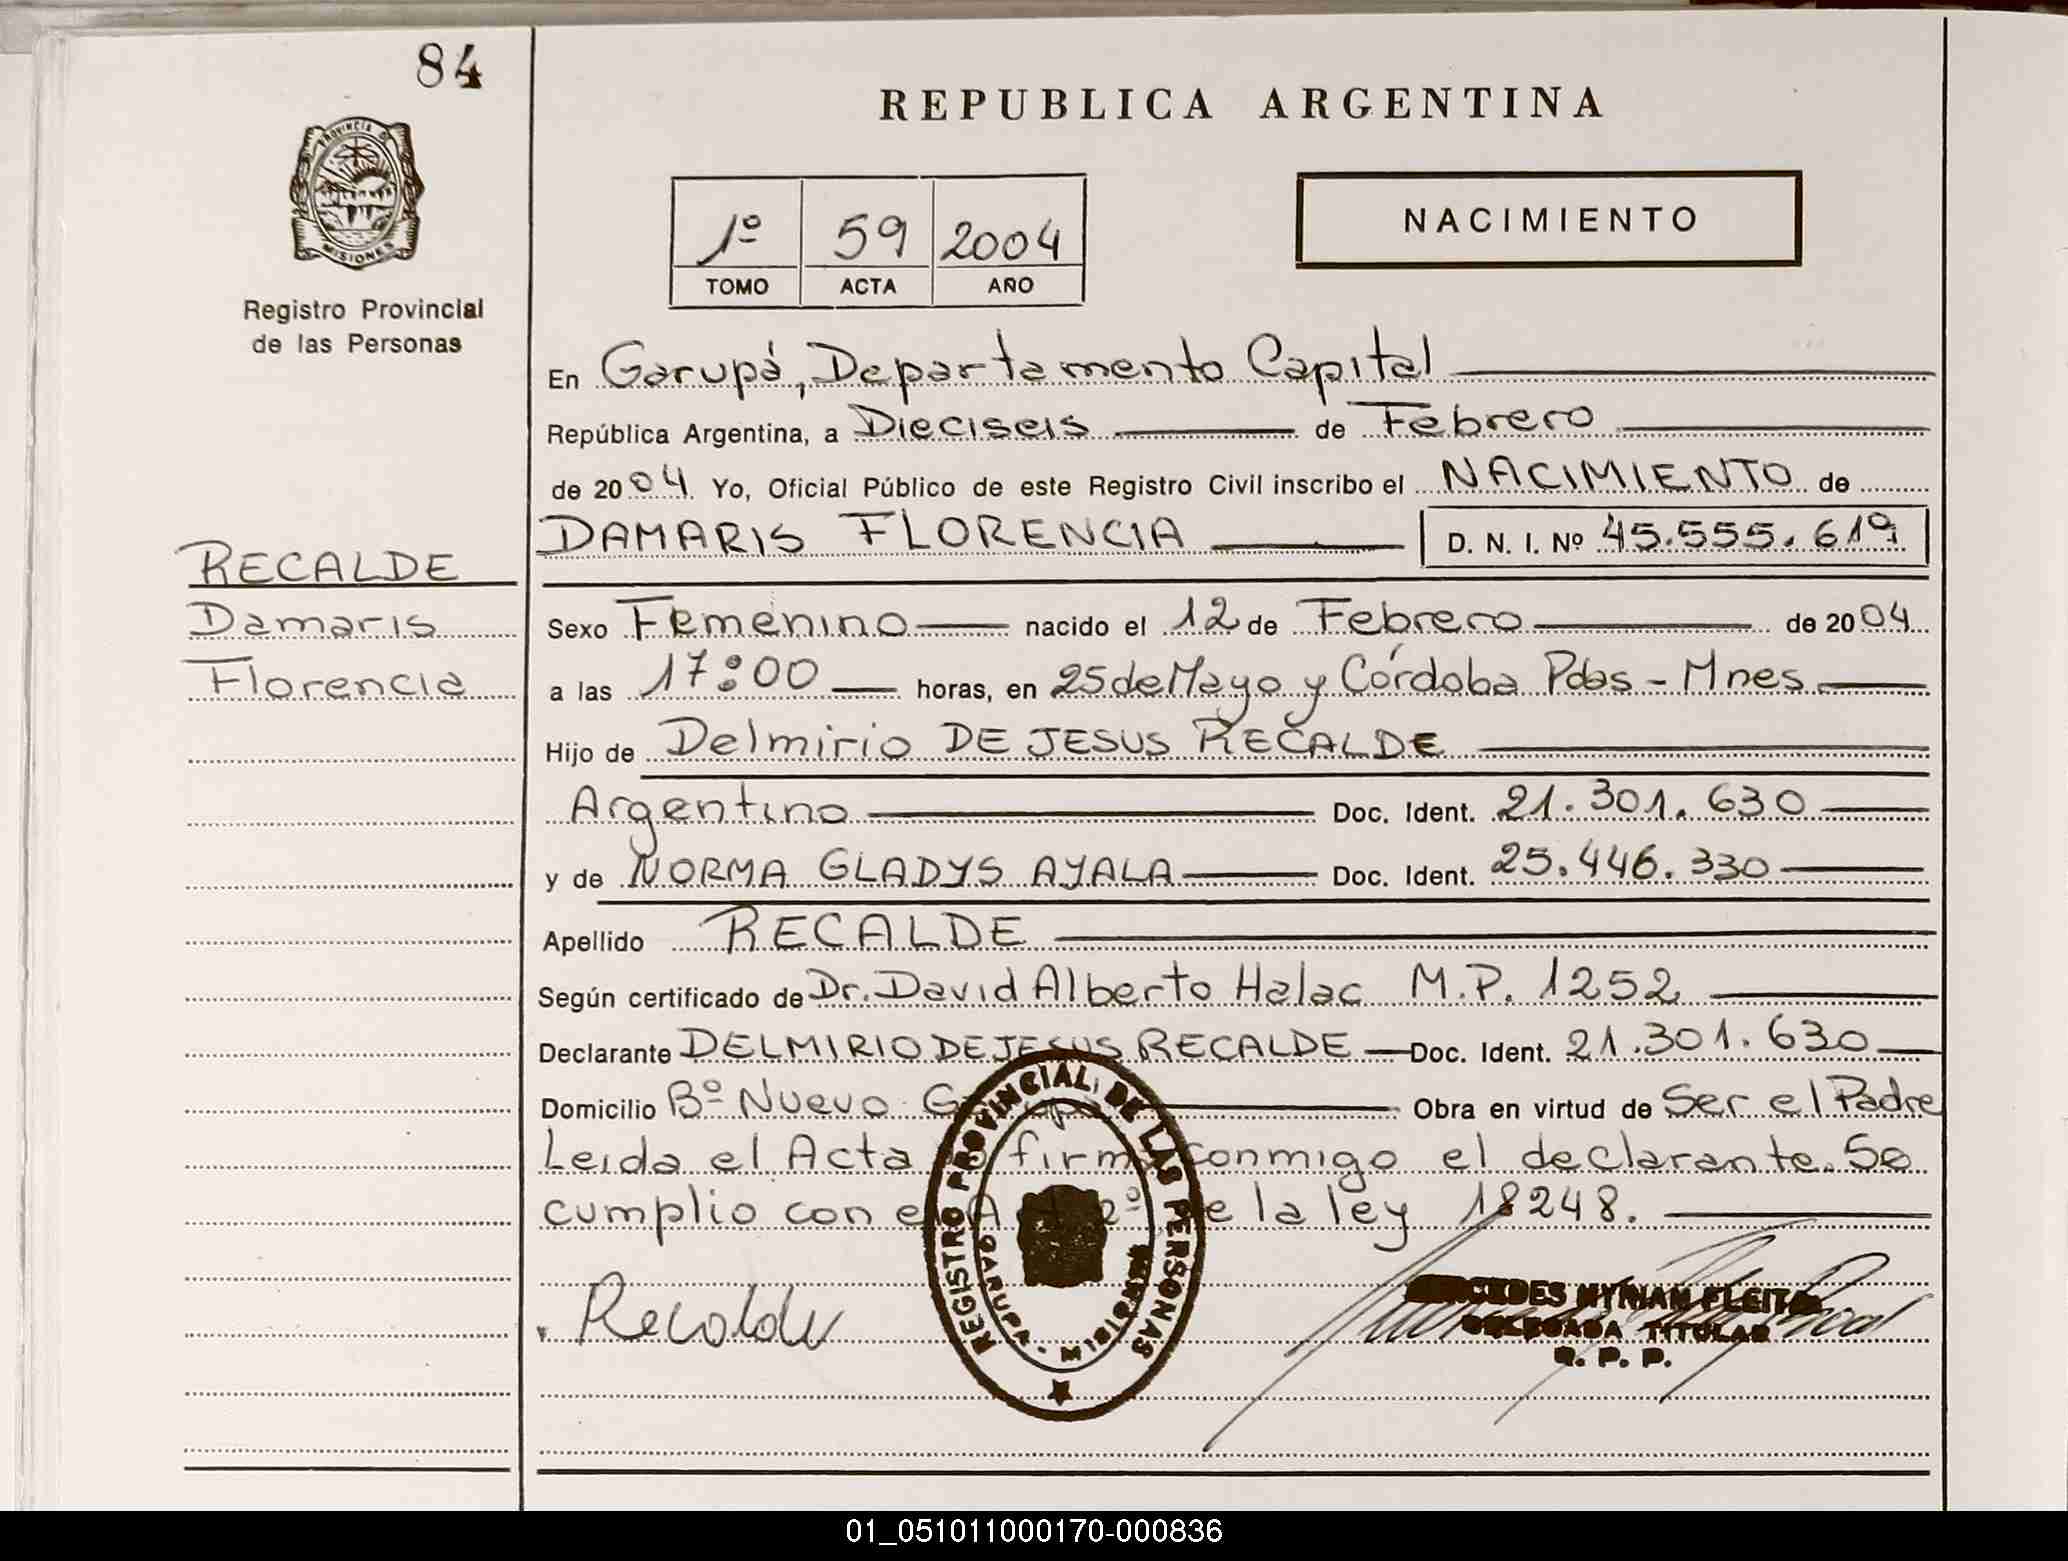 84
PROVINCIA D
MISIONES
Registro Provincial
de las Personas
RECALDE
Damaris
Florencia
REPUBLICA ARGENTINA
1º 59 2004
TOMO ACTA AÑO
NACIMIENTO
En Garupá, Departamento Capital
República Argentina, a Dieciseis de Febrero
de 2004 Yo, Oficial Público de este Registro Civil inscribo el NACIMIENTO de
DAMARIS FLORENCIA D. N. I. Nº 45.555.619
Sexo Femenino nacido el 12 de Febrero de 2004
a las 17:00 horas, en 25 de Mayo y Córdoba Pdas - Mnes
Hijo de Delmirio DE JESUS RECALDE
Argentino Doc. Ident. 21.301.630
y de NORMA GLADYS AYALA Doc. Ident. 25.446.330
Apellido RECALDE
Según certificado de Dr. David Alberto Halac M.P. 1252
Declarante DELMIRIO DE JESUS RECALDE Doc. Ident. 21.301.630
Domicilio Bº Nuevo Garupá Obra en virtud de Ser el Padre
Leida el Acta firma conmigo el declarante. Se
cumplio con el Art 2º de la ley 18248.
Recalde
REGISTRO PROVINCIAL DE LAS PERSONAS
GARUPA - MISIONES
MERCEDES MYRIAM FLEITA
DELEGADA TITULAR
R. P. P.
01_051011000170-000836